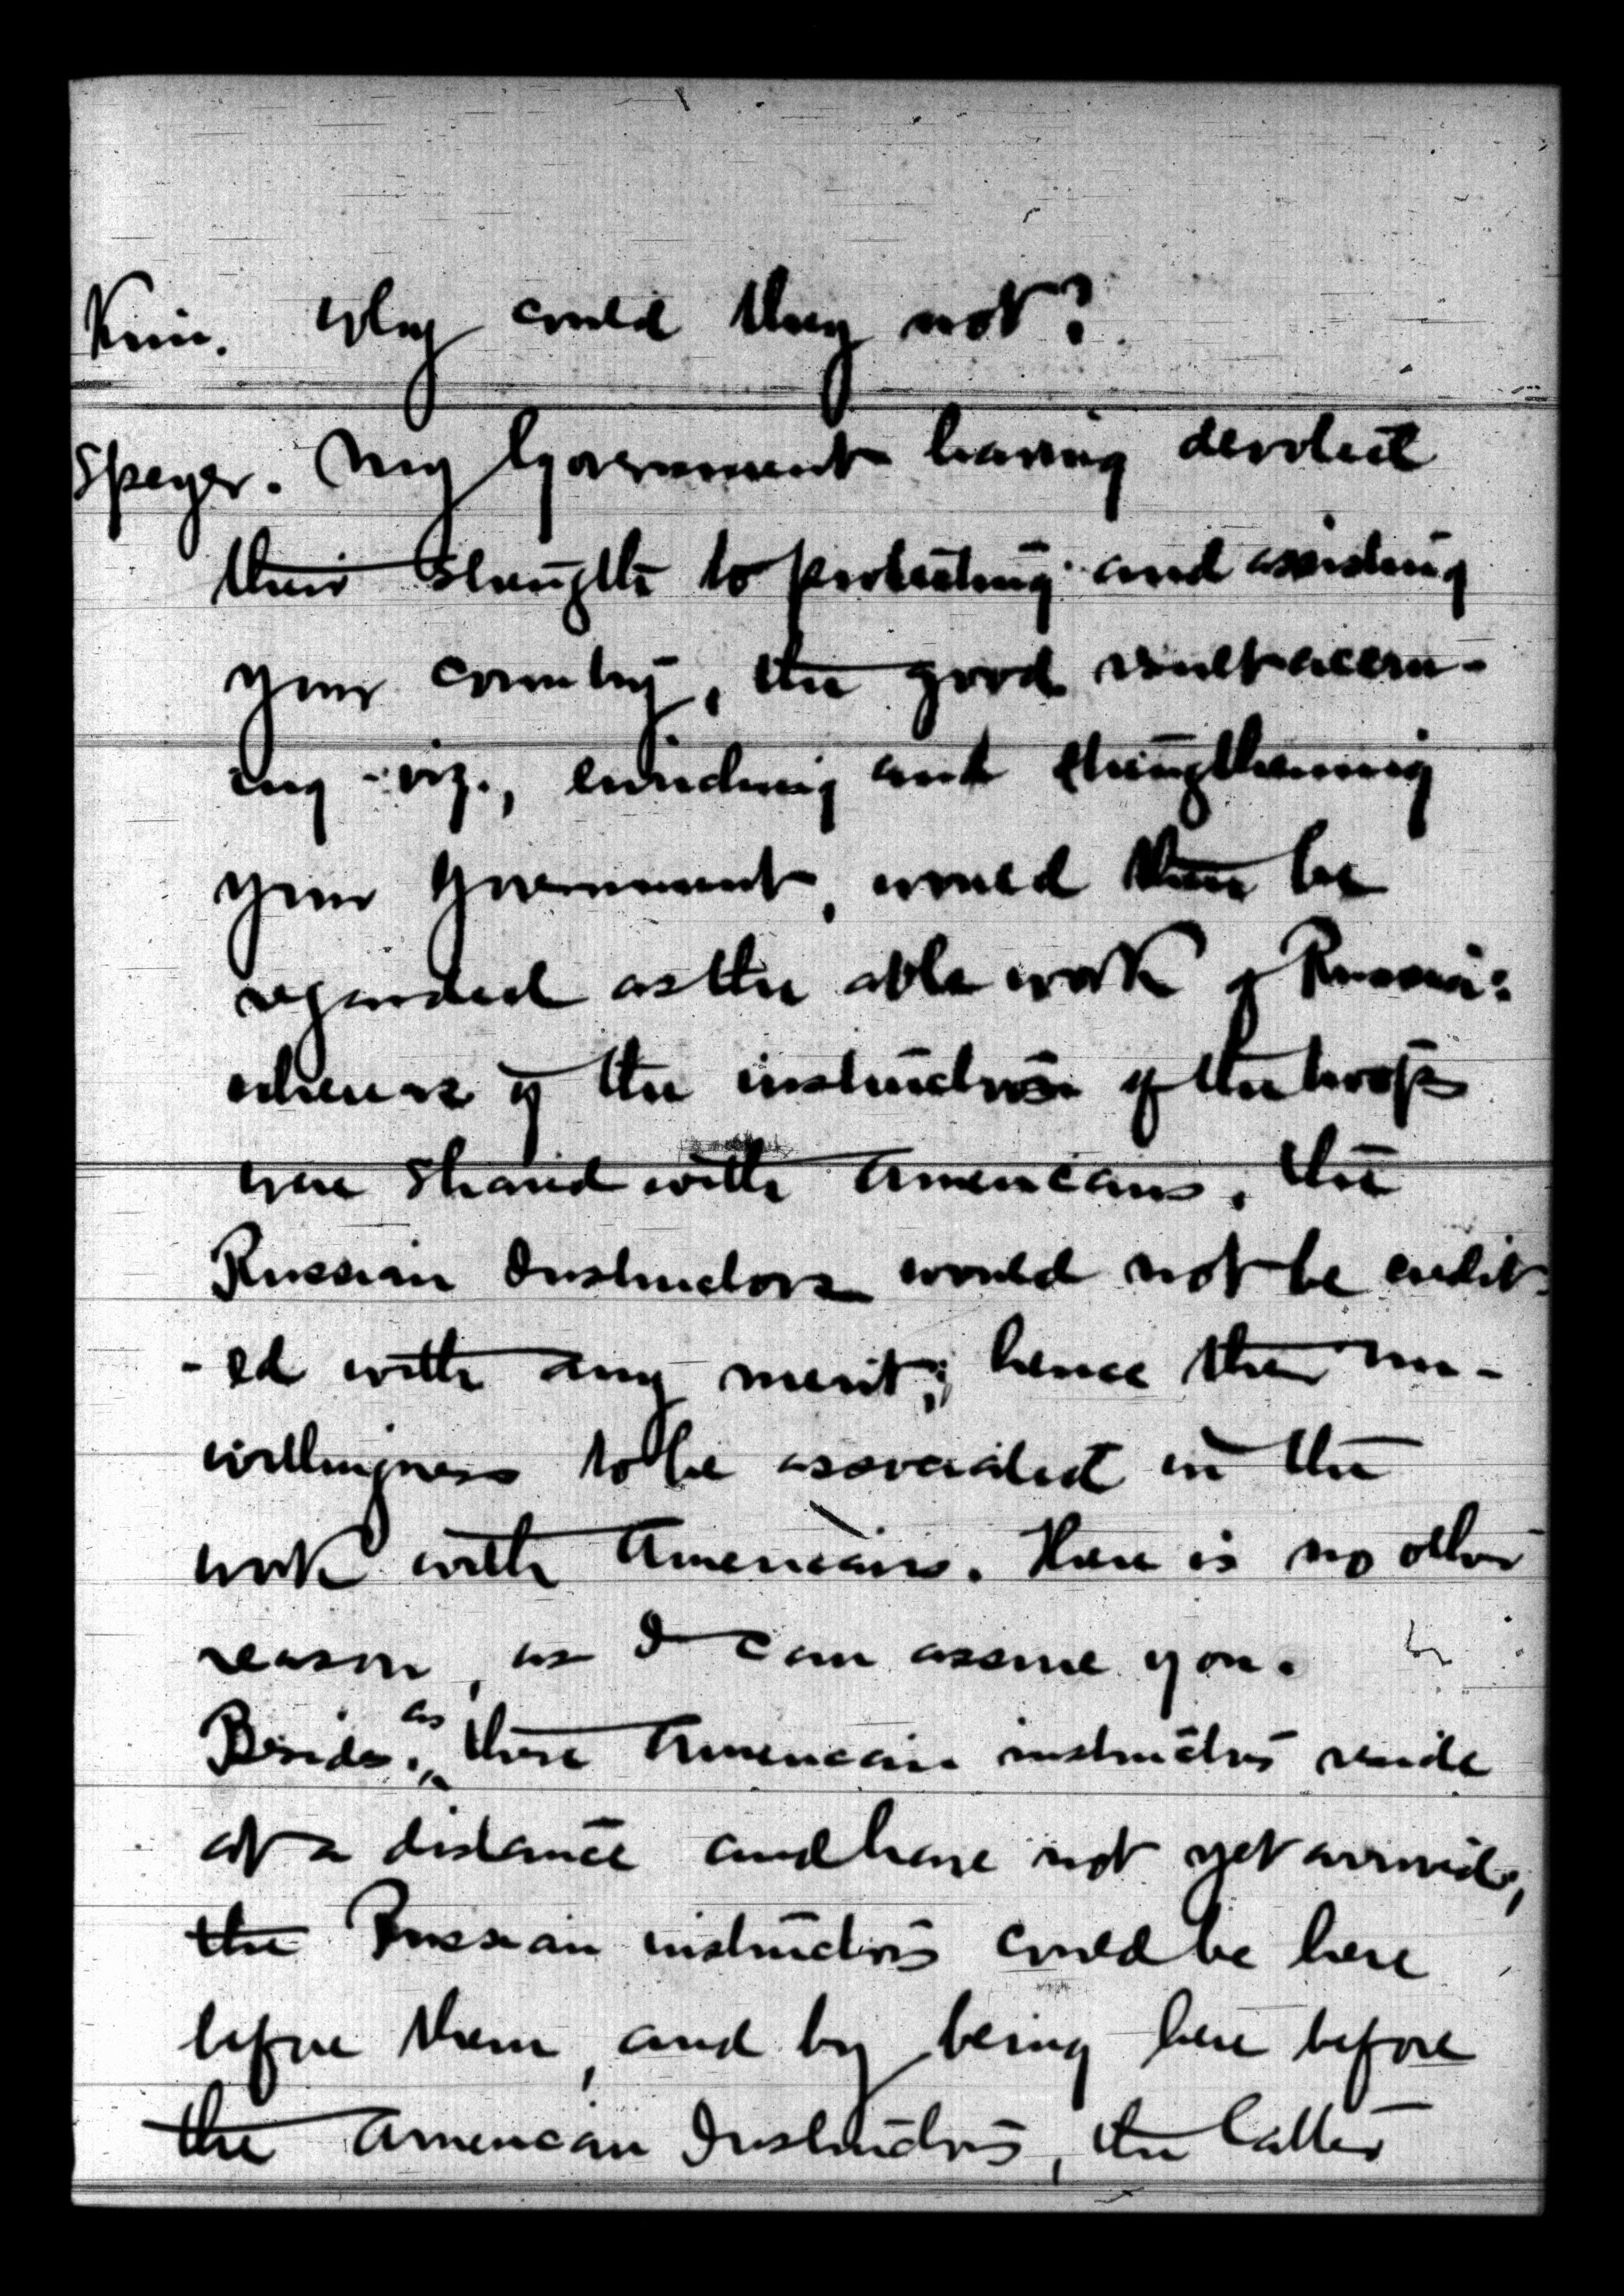 Kim. Why could they not?
Speyer. My Government having devoted
their strength to protecting and assisting
your country, the good result accru-
ing - viz., enriching and strengthening
your Government, would then be
regarded as the able work of Russia:
whereas if the instruction of the troops
were shared with Americans, the
Russian Instructors would not be credit-
-ed with any merit; hence their un-
willingness to be associated in the
work with Americans. There is no other
reason, as I can assure you.
Besides, as these American instructors reside
at a distance and have not yet arrived,
the Russian instructors could be here
before them, and by being here before
the American Instructors, the latter